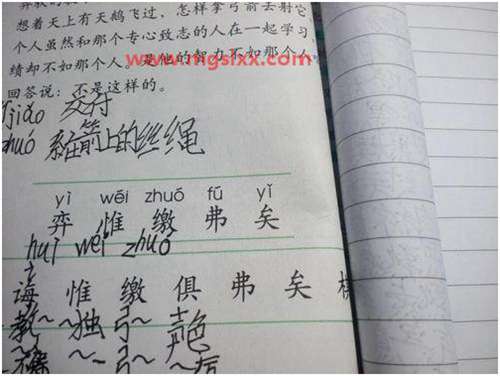 想着天上有天鹅飞过，怎样拿弓箭去射它
个人虽然和那个专心致志的人在一起学习
绩却不如那个人。是他的智力不如那个人
www.mgslxx.com
回答说：不是这样的。
jiǎo 交付
zhuó 系在箭上的丝绳
yì wéi zhuó fú yǐ
弈 惟 缴 弗 矣
huì wéi zhuó
诲 惟 缴 俱 弗 矣
教～ ～独 弓～ 声色
～ ～弓～ ～病